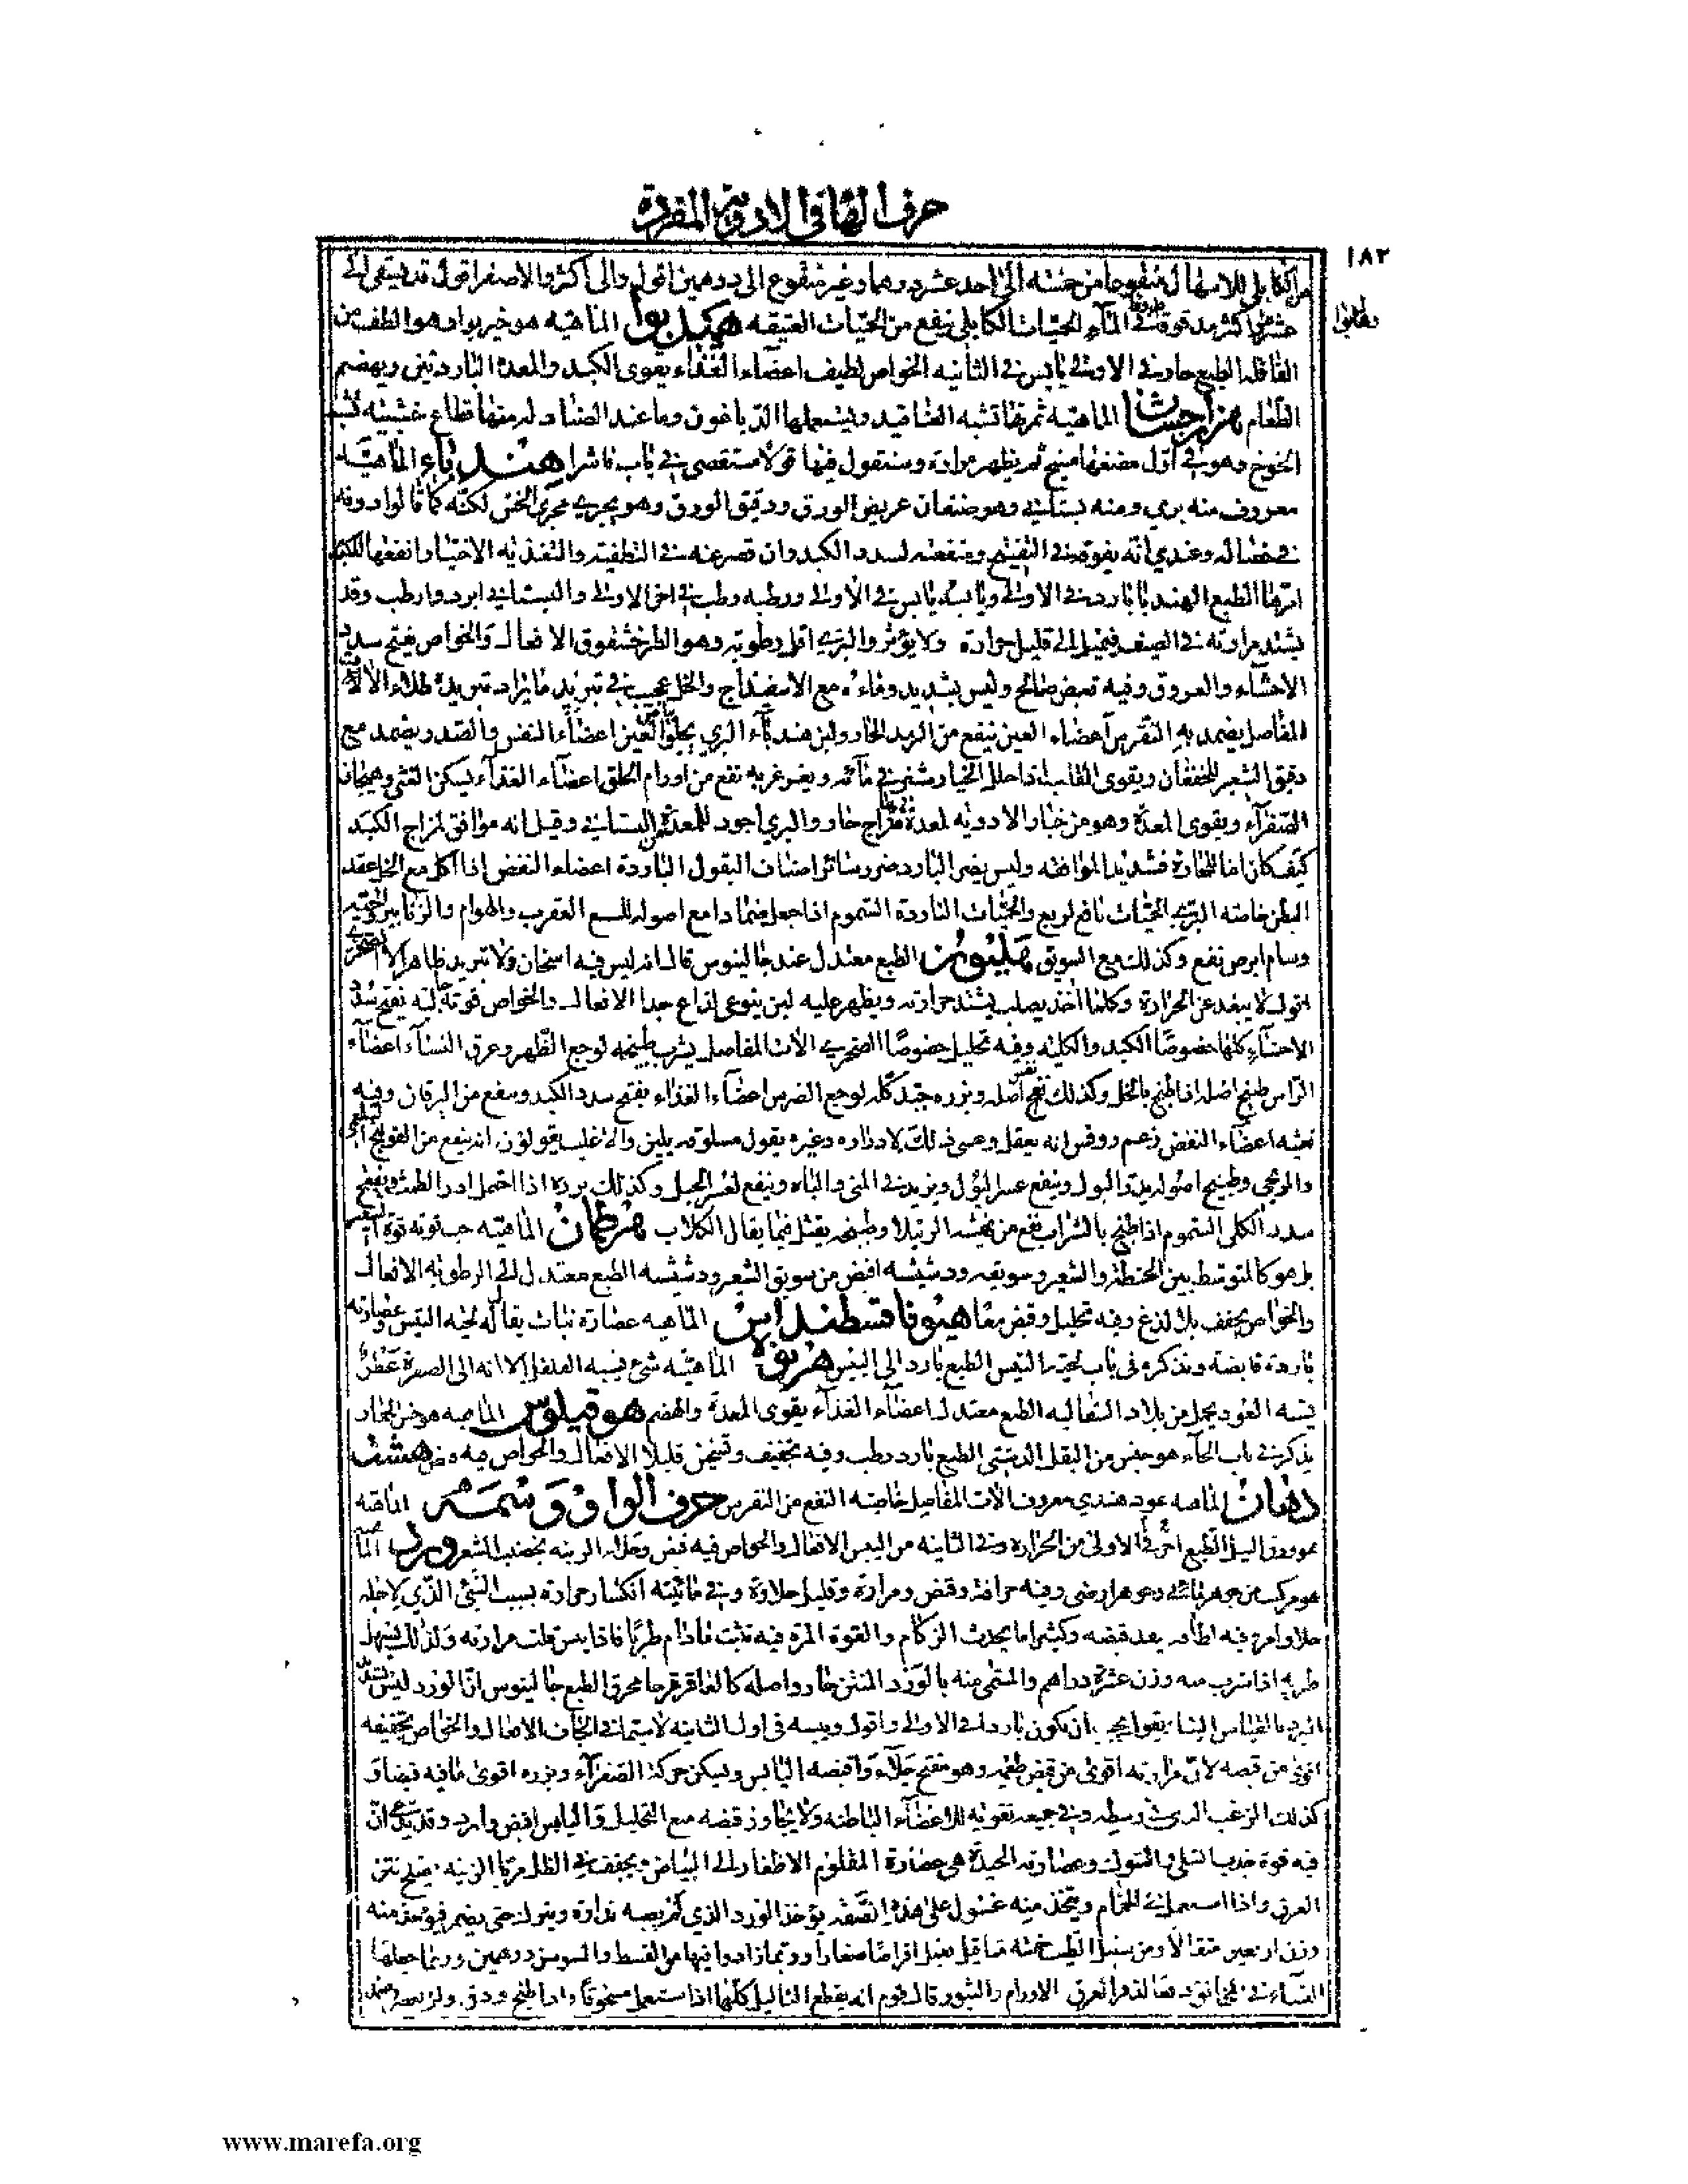 حرف الها في الادوية المفردة
١٨٢
من الكابلي للاسهال منقوعا من خمسة الى احد عشر درهما وغير منقوع الى درهمين اقول والى اكثر والاصفر اقول قد يسقى الى
عشرة اكثر مدقوقة في الماء الحميات الكابلي ينفع من الحميات العتيقه هيل بوا الماهيه هو خير بوا وهو الطف من
القاقله الطبع حار في الاولى يابس في الثانيه الخواص لطيف اعضاء الغذاء يقوى الكبد والمعدة الباردتين ويهضم
الطعام هزارجشان الماهيه ثمرتها تشبه العناقيد ويستعملها الدباغون وما عند الصنادلة منها قطاع خشبيه تشبه
الخولنج وهو في اول مضغها مسيخ ثم يظهر مرارة وسنقول فيها قولا مستقصى في باب فاشرا هندباء الماهيه
معروف منه بري ومنه بستاني وهو صنفان عريض الورق ودقيق الورق وهو يجري مجرى الخس لكنه كما قالوا دونه
في خصاله وعندي انه يفوقه في التفتيح ومنفعته لسدد الكبد وان قصر عنه في التطفيه والتغذيه الاختيار انفعها للكبد
امرها الطبع الهندبا بارد في الاولى ويابسه يابس في الاولى ورطبه رطب في اخر الاولى والبستاني ابرد وارطب وقد
يشتد مرارته في الصيف فيميل الى قليل حرارة ولا يؤثر والبري اقل رطوبه وهو الطرخشقوق الافعال والخواص يفتح سدد
الاحشاء والعروق وفيه قبض صالح وليس بشديد وماءه مع الاسفيداج والخل عجيب في تبريد ما يراد تبريده طلاء الالات
المفاصل يضمد به النقرس اعضاء العين ينفع من الرمد الحار ولبن هندباء البري يجلو بياض العين اعضاء النفس والصدر يضمد مع
دقيق الشعير للخفقان ويقوى القلب اذا حلل الخيارشنبر في مائه ويغرغر به نفع من اورام الحلق اعضاء الغذاء يسكن الغثى وهيجان
الصفراء ويقوى المعدة وهو من خيار الادويه لمعدة بها مزاج حار والبري اجود للمعدة من البستاني وقيل انه موافق لمزاج الكبد
كيف كان اما للحارة فشديد الموافقه وليس يضر البارد ضرر سائر اصناف البقول الباردة اعضاء النفض اذا اكل مع الخل عقد
البطن خاصه البري الحميات نافع لربع والحميات الباردة السموم اذا جعل ضمادا مع اصوله للسع العقرب والهوام والزنابير والحيه
وسام ابرص نفع وكذلك مع السويق هليون الطبع معتدل عند جالينوس قال انه ليس فيه اسخان ولا تبريد ظاهر الا الصخري
اقول لا يبعد عن الحرارة وكلما اخذ يصلب يشتد حرارته ويظهر عليه لبن يتوعى لذاع جدا الافعال والخواص قوته جاليه يفتح سدد
الاحشاء كلها خصوصا الكبد والكليه وفيه تحليل خصوصا الصخري الالات المفاصل يشرب طبيخه لوجع الظهر وعرق النساء اعضاء
الراس طبيخ اصله اذا طبخ بالخل وكذلك نفس اصله وبزره جيد كله لوجع الضرس اعضاء الغذاء يفتح سدد الكبد وينفع من اليرقان وفيه
تغثيه اعضاء النفض زعم روفس انه يعقل وعسى ذلك لادراره وغيره يقول مسلوقه يلين والاغلب يقولون انه ينفع من القولنج البلغمي
والريحي وطبيخ اصوله يدر البول وينفع عسر البول ويزيد في المنى والباه وينفع لعسر الحبل وكذلك بزره اذا احتمل ادر الطمث ويفتح
سدد الكلى السموم اذا طبخ بالشراب نفع من نهشه الرتيلا وطبيخه يقتل فيما يقال الكلاب هرطمان الماهيه حب قوته قوة الشعير
بل هو كالمتوسط بين الحنطة والشعير وسويقه ودشيشه اقبض من سويق الشعير ودشيشه الطبع معتدل الى الرطوبه الافعال
والخواص يجفف بلا لذع وفيه تحليل وقبض معا هيوفاقسطيداس الماهيه عصارة نبات يقال له لحيه التيس وعصارته
باردة قابضة ونذكره في باب لحية التيس الطبع بارد الى اليبس هرنوة الماهيه شئ يشبه الفلفل الا انه الى الصفرة عطر
يشبه العود يحمل من بلاد السقالبه الطبع معتدل اعضاء الغذاء يقوى المعدة والهضم هوفيلوس الماهيه هو خس الحمار
يذكر في باب الخاء هو جنس من البقل الدشتي الطبع بارد رطب وفيه تجفيف وتسخين قليلا الافعال والخواص فيه قبض هشت
دهان الماهيه عود هندي معروف الات المفاصل خاصته النفع من النقرس حرف الواو وسمه الماهيه
هو ورق النيل الطبع اخر في الاولى من الحرارة وفي الثانيه من اليبس الافعال والخواص فيه قبض وجلاء الزينه يخضب الشعر ورد الماهيه
هو مركب من جوهر مائي وجوهر ارضي وفيه حرافة وقبض ومرارة وقليل حلاوة وفي مائيته انكسار حرارة بسبب الشئ الذي لاجله
حلا وامر وفيه لطافه ينفذ قبضه وكثيرا ما يحدث الزكام والقوة المرة فيه تثبت ما دام طريا فاذا يبس قلت مرارته ولذلك يسهل
طريه اذا شرب منه وزن عشرة دراهم والمسمى منه بالورد المنتن حار واصله كالعاقرقرحا محرق الطبع جالينوس ان الورد ليس بشديد
البرد بالقياس الينا يقول يجب ان يكون باردا في الاولى واقول ويبسه في اول الثانيه لا سيما في الجاف الافعال والخواص تجفيفه
اقوى من قبضه لان مرارته اقوى من قبض طعمه وهو مفتح جلاء واقبضه اليابس ويسكن حركة الصفراء وبزره اقوى ما فيه قبضا و
كذلك الزغب الذي في وسطه وفي جميعه تقويه للاعضاء الباطنه ولا يجاوز قبضه مع التحليل واليابس اقبض وابرد وقد يدعى ان
فيه قوة جذب السلى والشوك وعصارته الجيدة هي عصارة المقلوم الاظفار الى البياض ويجفف في الظل مربا الزينه يصلح نتن
العرق واذا استعمل في الحمام ويتخذ منه غسول على هذه الصفة يؤخذ الورد الذي لم يصبه نداوة ويترك حتى يضمر فيؤخذ منه
وزن اربعين مثقالا ومن سنبل الطيب خمسة مثاقيل يعمل اقراصا صغارا وربما زادوا فيها من القسط والسوسن درهمين وربما جعلها
النساء في مخانق دفعا لذفر العرق الاورام والبثور قال قوم انه يقطع الثاليل كلها اذا استعمل مسحوقا واذا طبخ ودق ولم يعصر ضمد
www.marefa.org